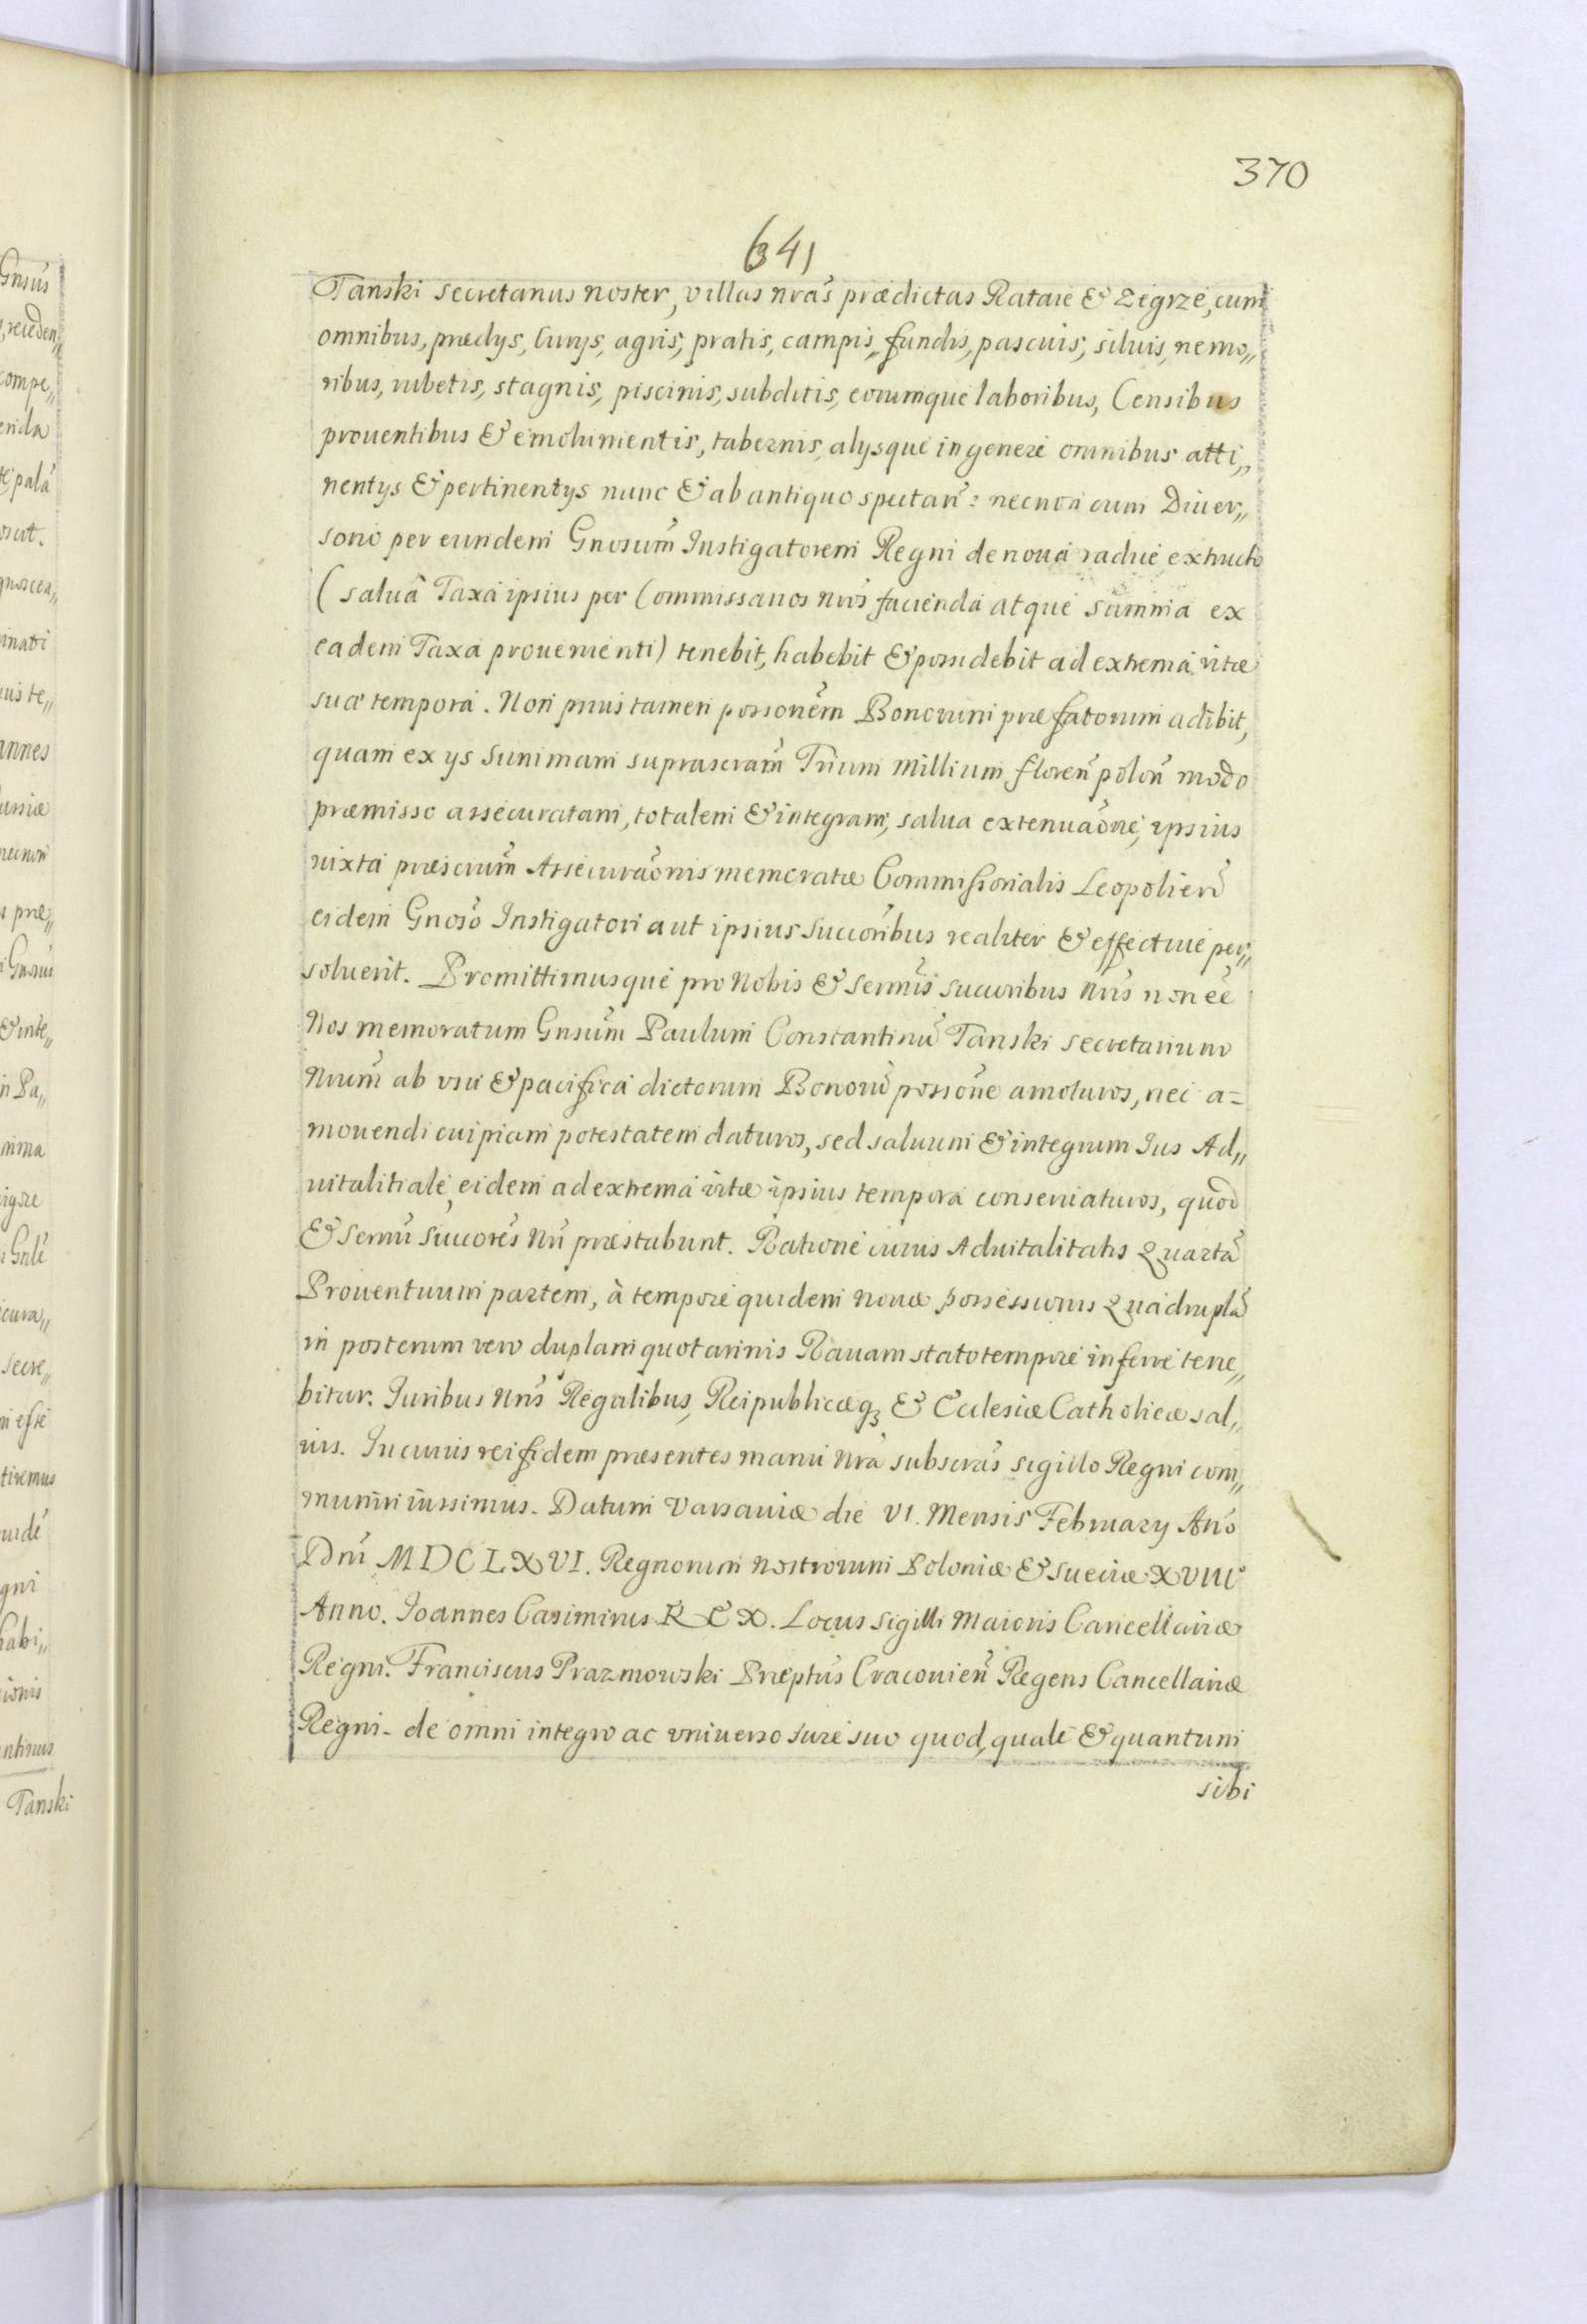 370
641
Tanski secretarius noster, villas nrãs prædictas Rataie & Zegrze, cum
omnibus, prædys, curys, agris, pratis, campis, fundis, pascuis, siluis, nemo„
ribus, rubetis, stagnis, piscinis, subditis, eorumque laboribus, Censibus
prouentibus & emolumentis, tabernis, alysque in genere omnibus atti„
nentys & pertinentys nunc & ab antiquo spectañ: necnon cum Diuer„
sorio per eundem Gnosum̃ Instigatorem Regni de noua radice extructo
(salua Taxa ipsius per Commissarios nrõs facienda atque summa ex
eadem Taxa proueniente) tenebit, habebit & possidebit ad extrema vitæ
suæ tempora. Non prius tamen possonẽm Bonorum præfatorum adibit,
quam ex ys summam suprascram̃ Trium Millium floreñ poloñ modo
præmisso assecuratam, totalem & integram, salua extenuaõne, ipsius
iuxta præscrum̃ Assecuraõnis memoratæ Commissionalis Leopolieñ
eidem Gnoso Instigatori aut ipsius succoribus realiter & effectiue per„
soluerit. Promittimusque pro Nobis & sermis̃ succoribus nris̃ non eẽ
Nos memoratum Gnsum̃ Paulum Constantinũ Tanski secretarium
Nrum̃ ab vsu & pacifica dictorum Bonorũ possoñe amoturos, nec a=
mouendi cuipiam potestatem daturos, sed saluum & integrum Ius Ad„
uitalitiale eidem ad extrema vitæ ipsius tempora conseruaturos, quod
& sermi succores nri præstabunt. Ratione cuius Aduitalitatis Quartã
Prouentuum partem, à tempore quidem nouæ possessionis Quadruplã
in posterum vero duplam quotannis Rauam stato tempore inferre tene„
bitur. Iuribus nris̃ Regalibus, Reipublicæq3 & Ecclesiæ Catholicæ sal„
uis. In cuius rei fidem præsentes manu nra subscras̃ sigillo Regni com„
muniri iussimus. Datum Varsauiæ die VI. Mensis February Año
Dni MDCLXVI. Regnorum nostrorum Poloniæ & sueciæ XVIIIº
Anno. Joannes Casimirus REX. Locus sigilli Maioris Cancellariæ
Regni. Franciscus Prazmowski Præptus̃ Cracouieñ Regens Cancellariæ
Regni. de omni integro ac vniuerso iure suo quod, quale & quantum
sibi